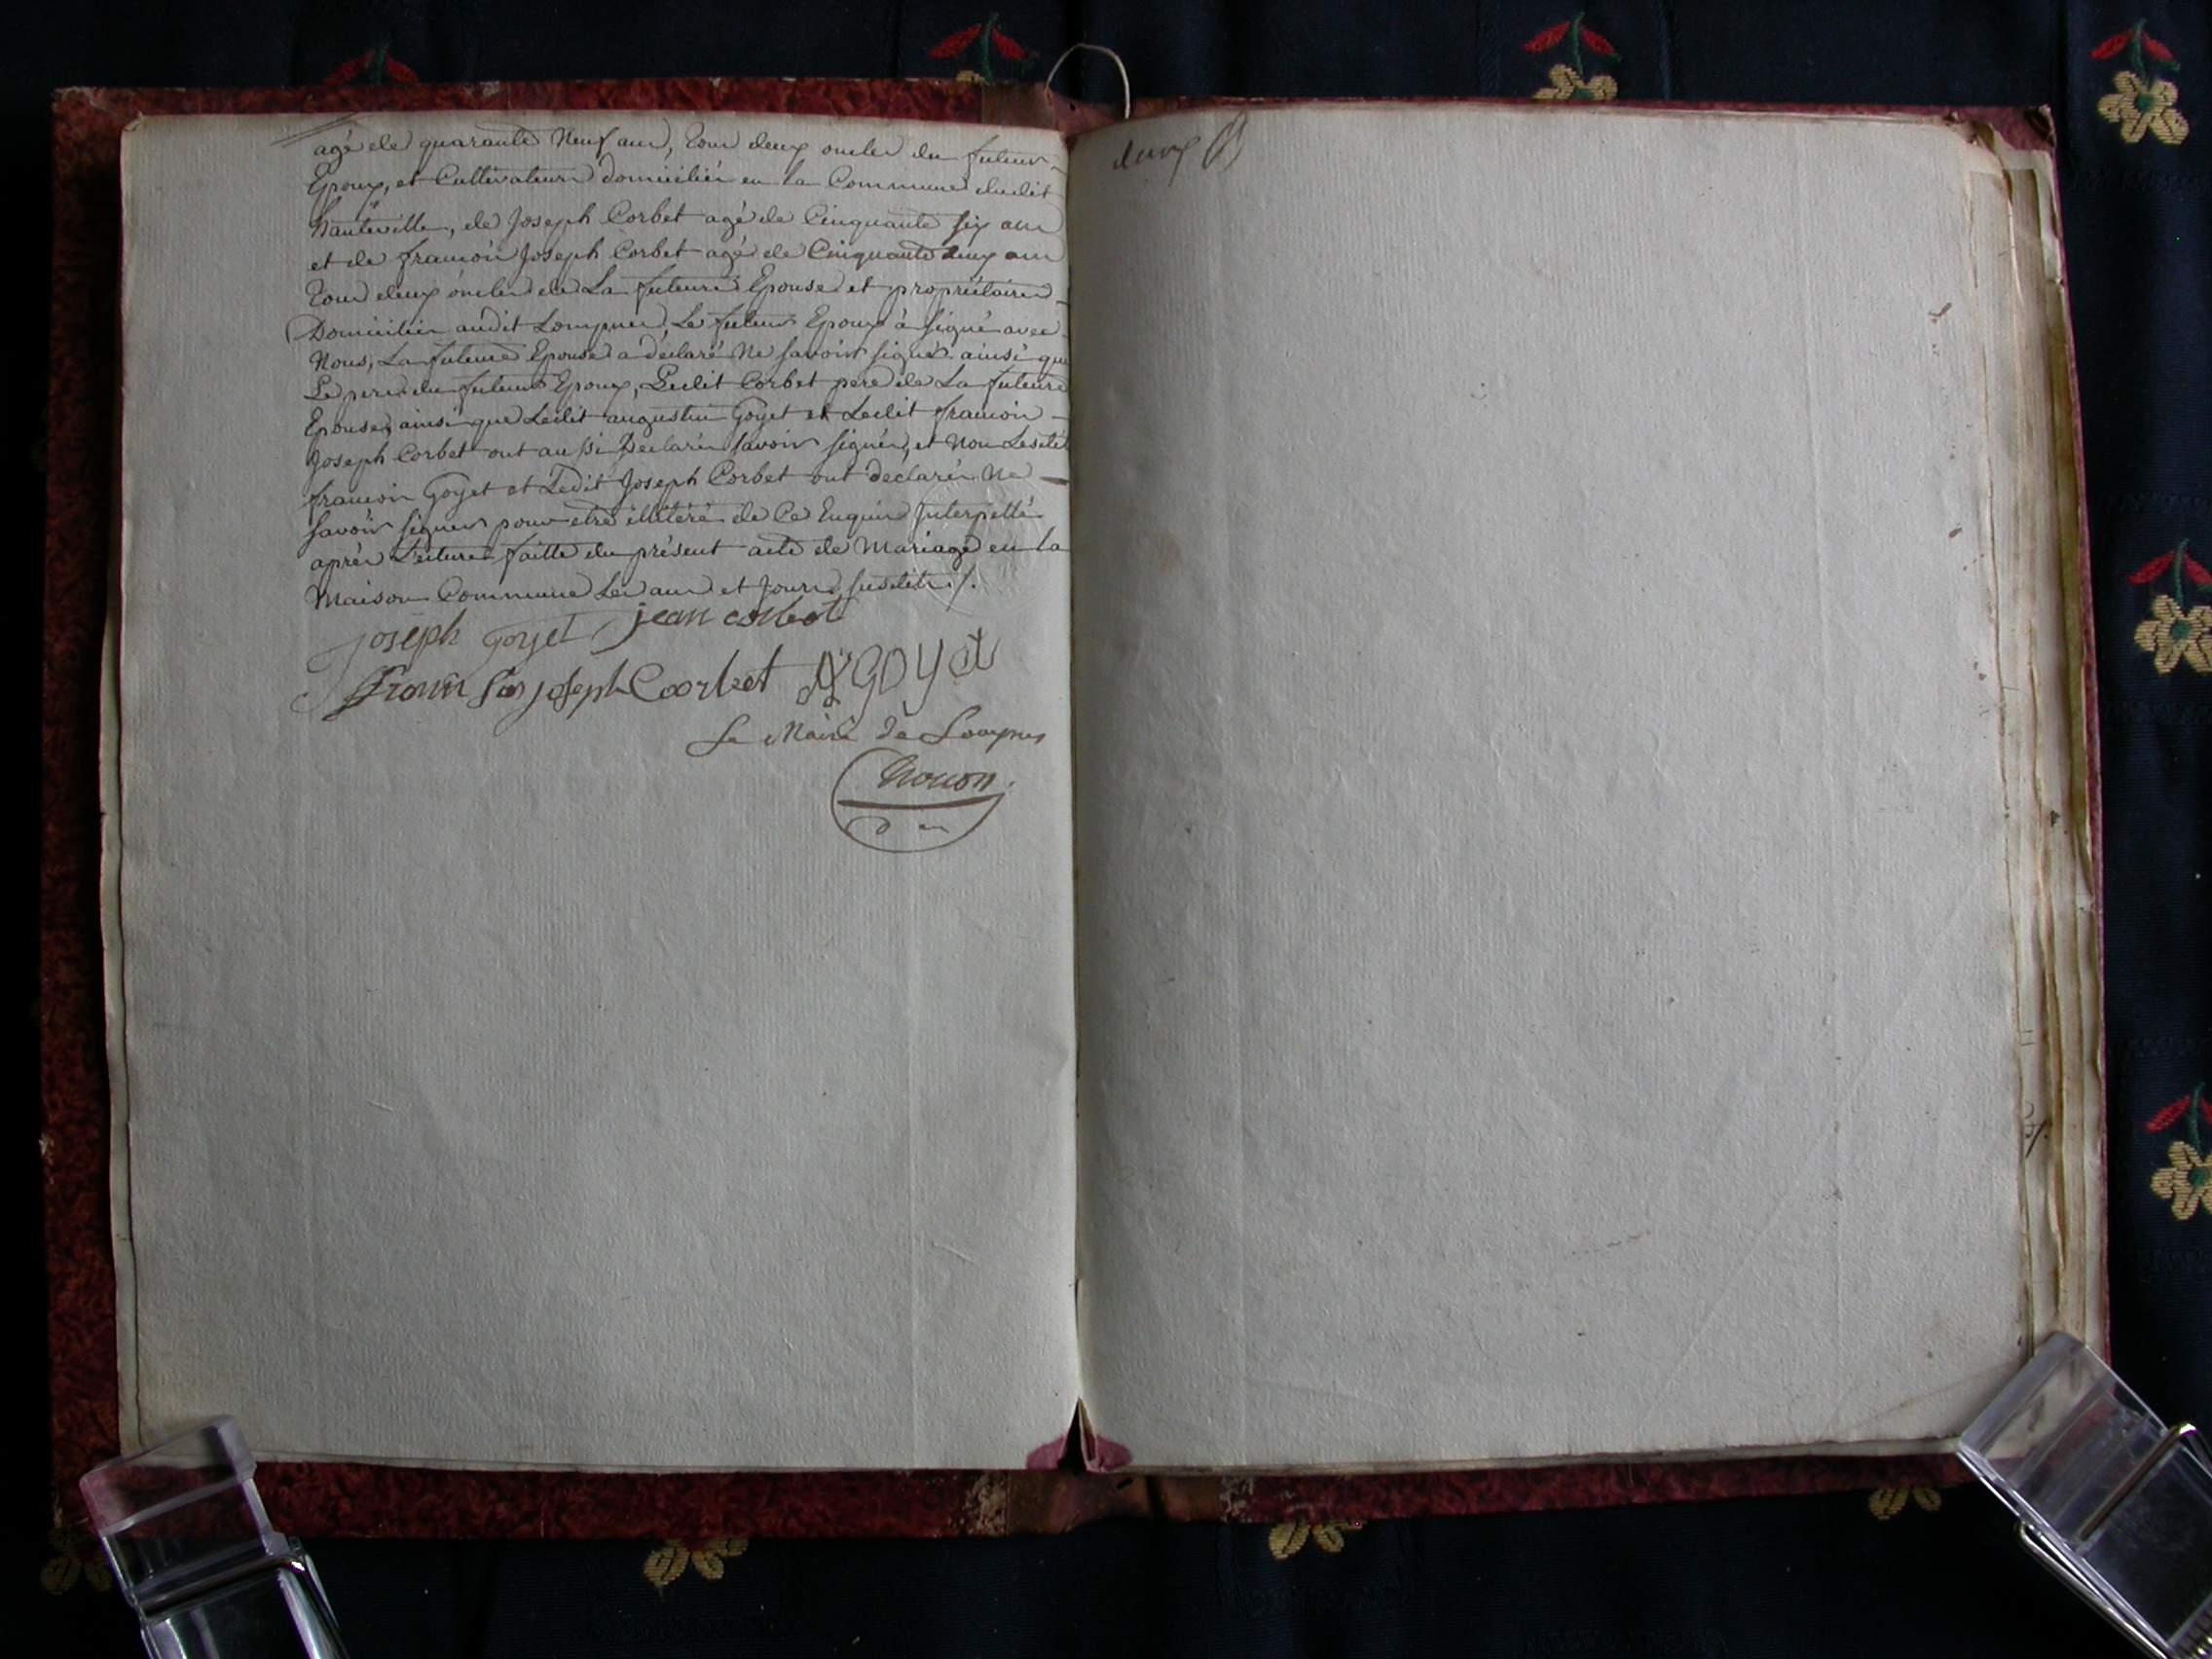 agé de quarante Neuf ans, tous deux oncles du futeur
Epoux, et Cultivateurs domiciliés en la Commune dudit
hauteville, de Joseph Corbet agé de Cinquante six ans
et de francois Joseph Corbet agé de Cinquante deux ans
tous deux oncles de La future Epouse et propriétaires
Domiciliés audit Lompnes, Le futeur Epoux à signé avec
Nous, La future Epouse a déclaré Ne savoir signér ainsi que
Le pere du futeur Epoux, Ledit Corbet pere de La future
Epouse, ainsi que Ledit augustin Goyet et Ledit francois
Joseph Corbet ont aussi Declarés savoir signér, et Non Lesdit
francois Goyet et Ledit Joseph Corbet ont declarés Ne
savoir signer pour etre illitéré de Ce Enquis Interpellé
après Lecture faitte du présent acte de Mariage en la
Maison Commune Les ans et Jours susdits ./.
joseph goyet jean corbet
francois joseph Corbet GOYet
Le Maire de Lompnes
deux